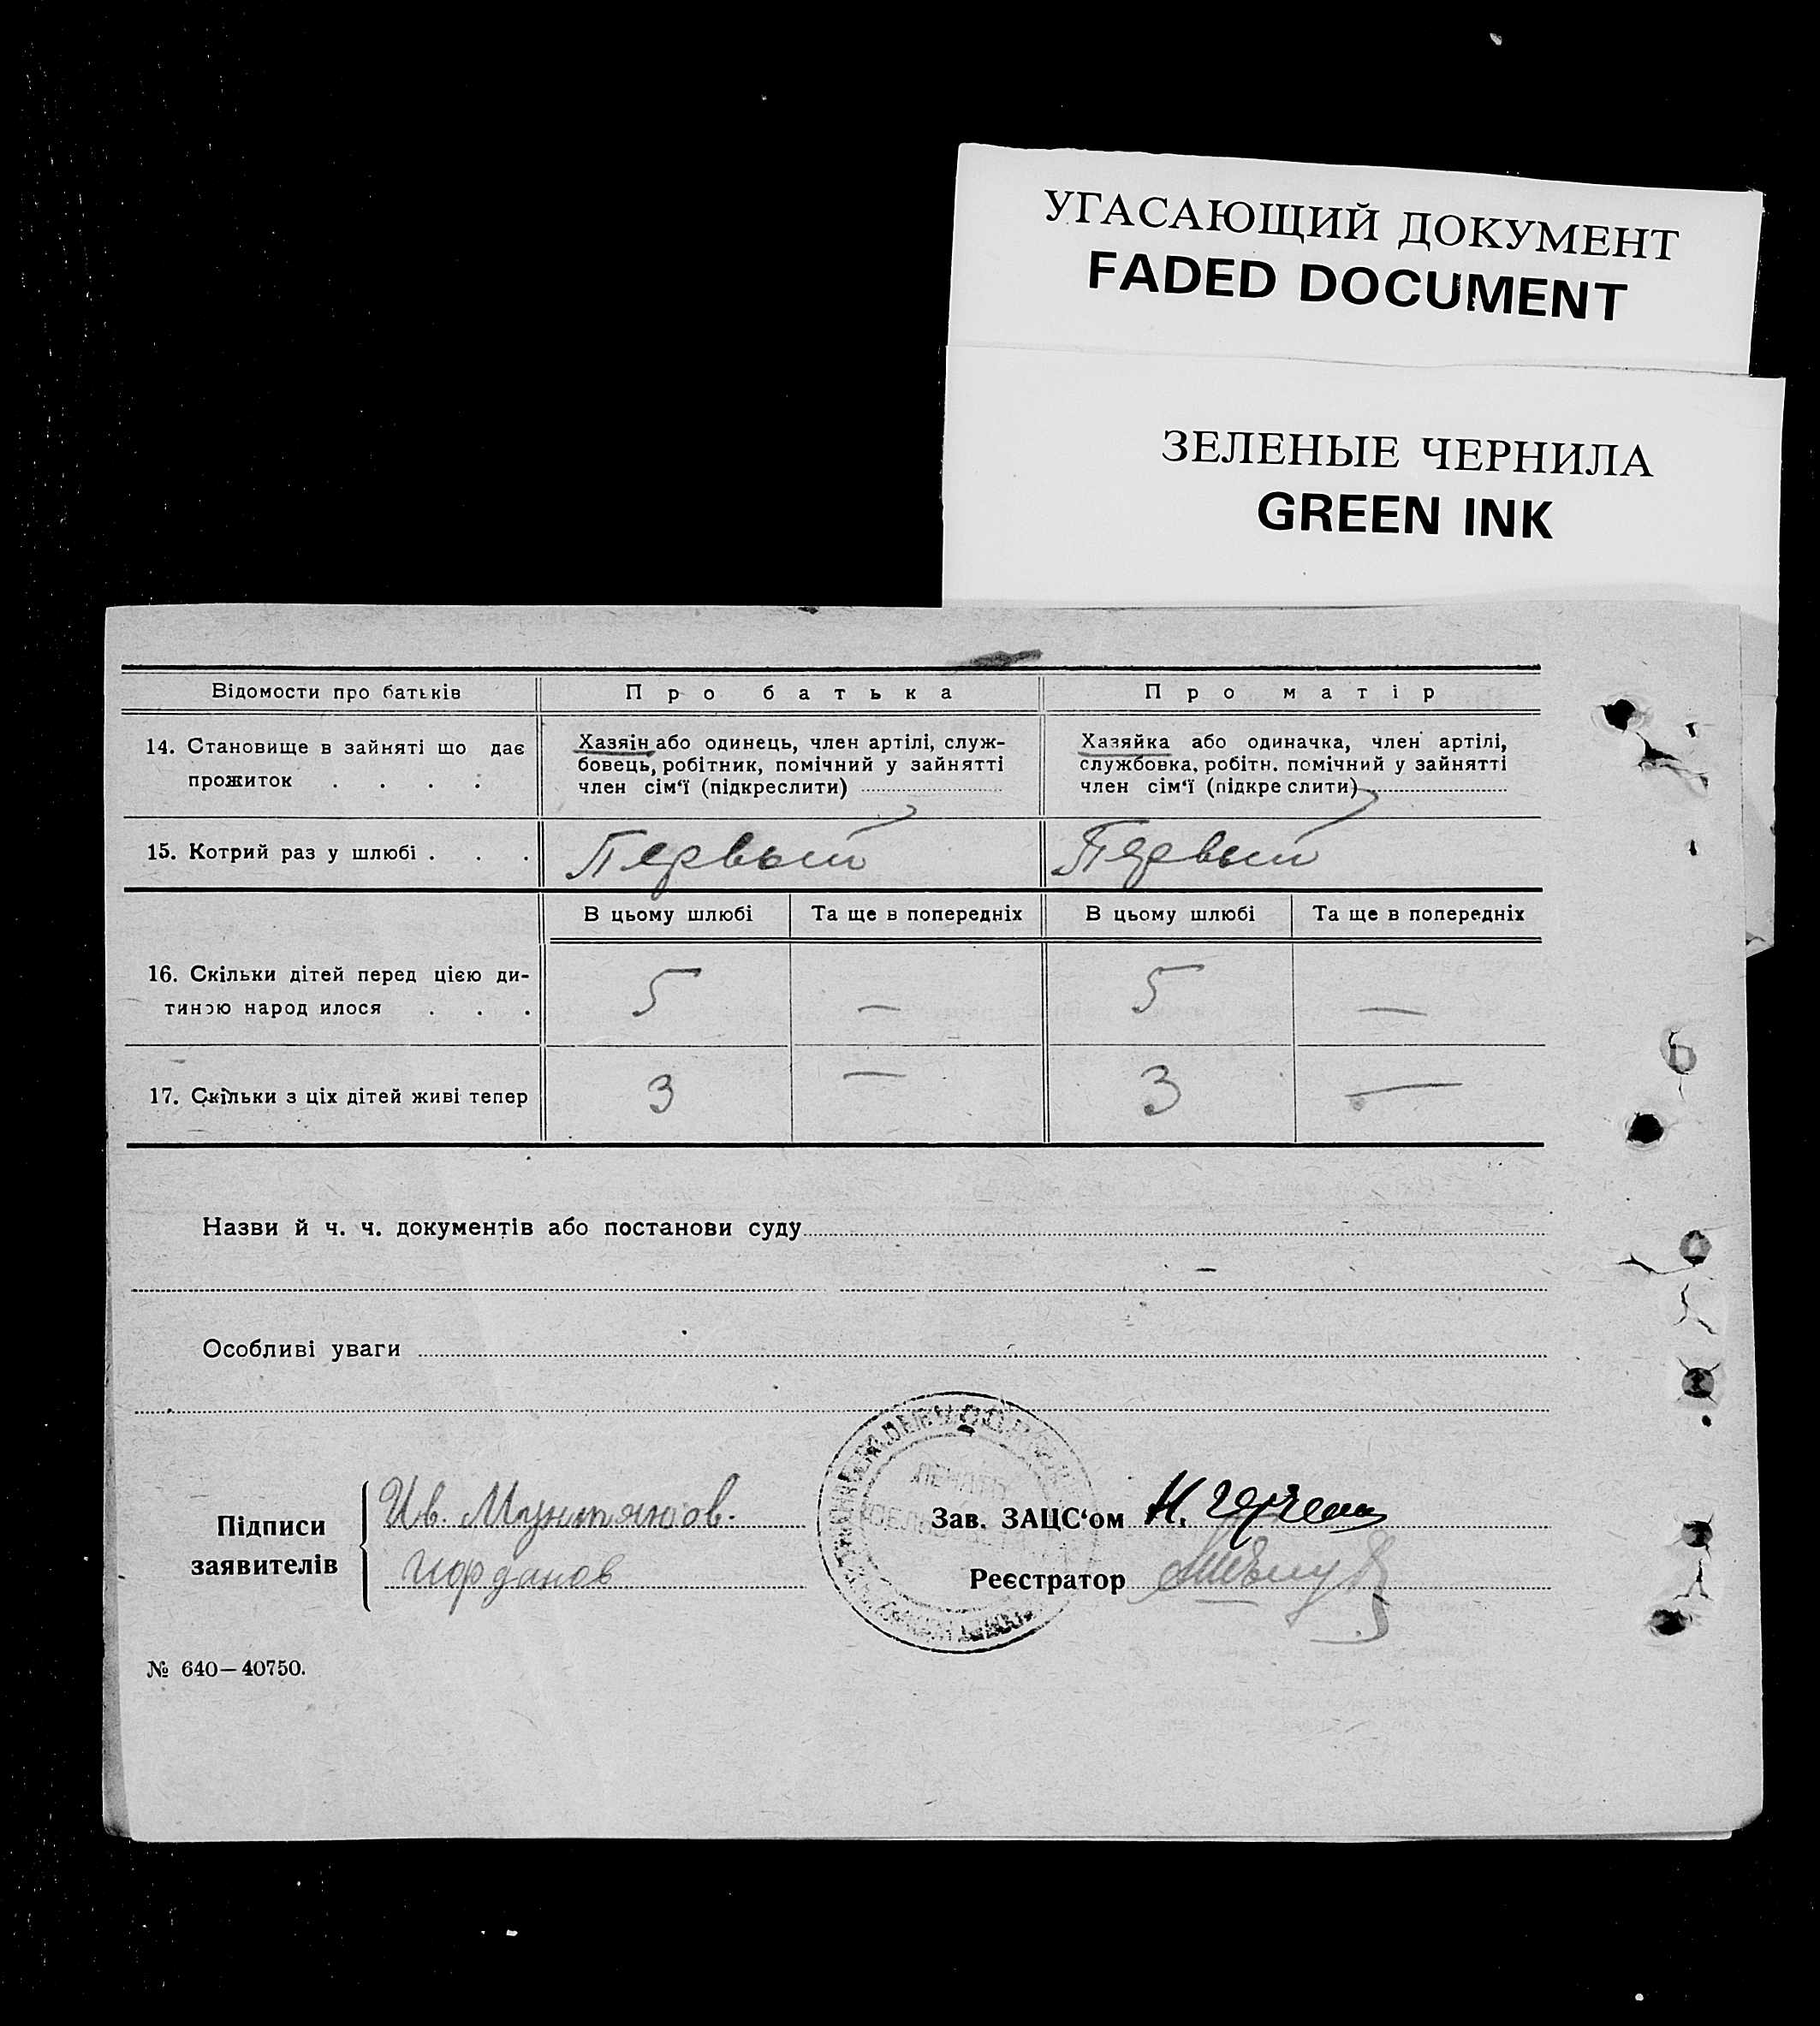 УГАСАЮЩИЙ ДОКУМЕНТ
FADED DOCUMENT
ЗЕЛЕНЫЕ ЧЕРНИЛА
GREEN INK
Відомости про батьків Про батька Про матір
14. Становище в зайняті що дає прожиток . . . .
Хазяін або одинець, член артілі, служ-
бовець, робітник, помічний у зайнятті
член сім'ї (підкреслити)
Хазяйка або одиначка, член артілі,
службовка, робітн. помічний у зайнятті
член сім'ї (підкре слити)
15. Котрий раз у шлюбі . . . Первый Первый
В цьому шлюбі Та ще в попередніх В цьому шлюбі Та ще в попередніх
16. Скільки дітей перед цією ди-
тиною народ илося . . . 5 — 5 —
17. Скільки з ціх дітей живі тепер 3 — 3 —
Назви й ч. ч. документів або постанови суду
Особливі уваги
Підписи
заявителів
Ив.
Иорданов
Зав. ЗАЦС'ом Н.
Реєстратор
№ 640—40750.